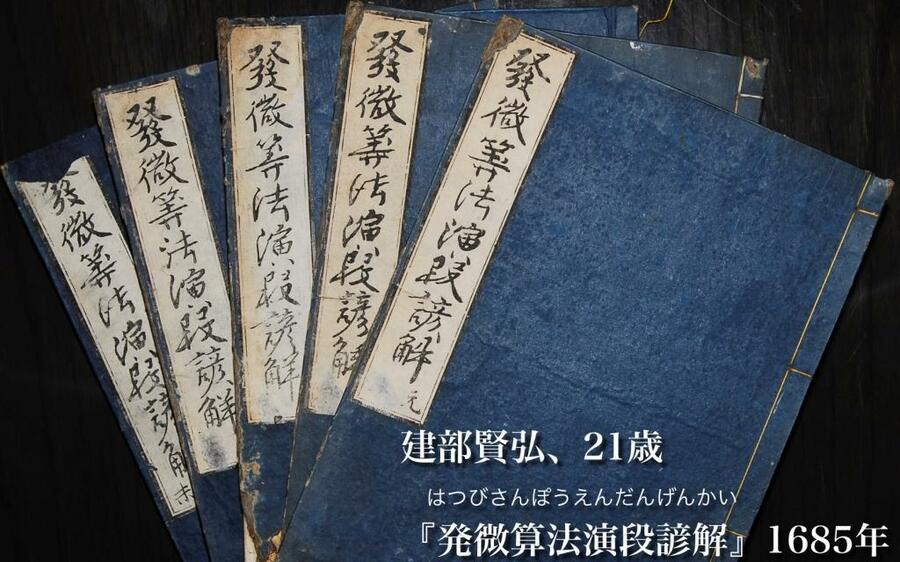 發微筭法演段諺解 元
發微筭法演段諺解
發微筭法演段諺解
發微筭法演段諺解
發微筭法演段諺解
建部賢弘、21歳
はつびさんぽうえんだんげんかい
『発微算法演段諺解』1685年